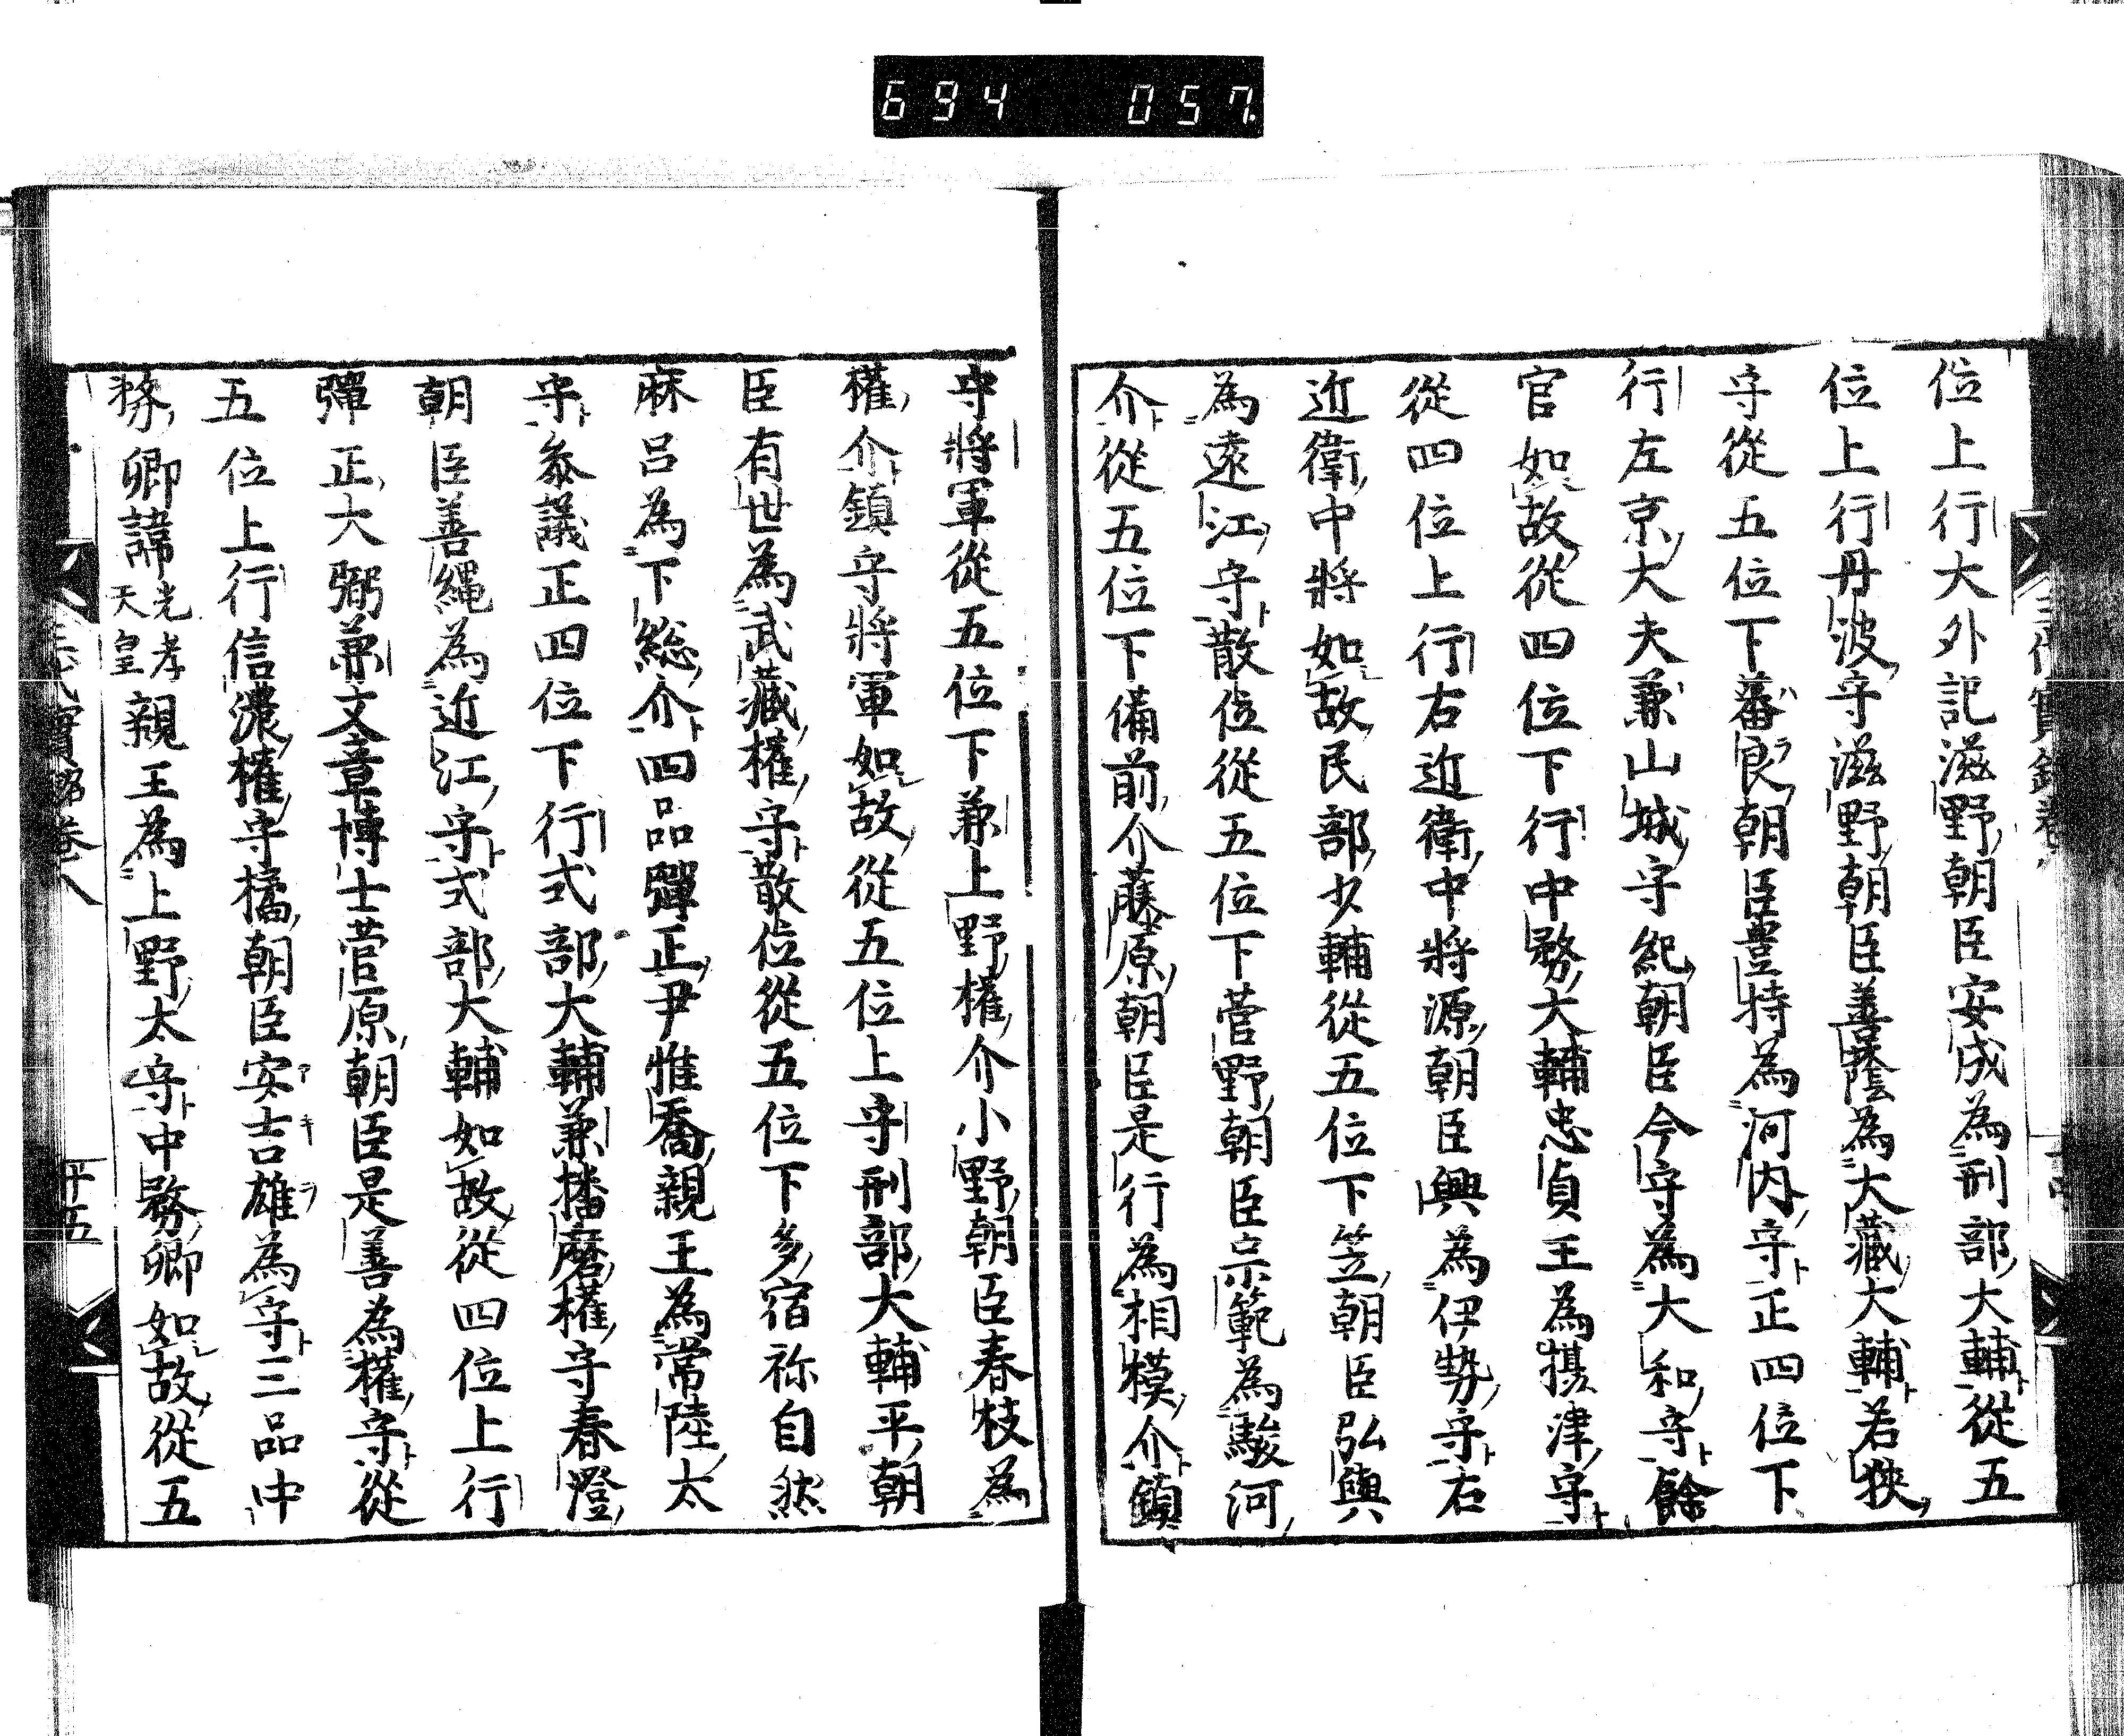 694 057
位上行大外記滋野朝臣安成為刑部大輔從五
位上行丹波守滋野朝臣善蔭為大藏大輔若狹
守從五位下蕃良朝臣豊持為河内守正四位下
行左京大夫兼山城守紀朝臣今守為大和守餘
官如故從四位下行中務大輔忠貞王為摂津守
從四位上行右近衛中將源朝臣興為伊勢守右
近衛中將如故民部少輔從五位下笠朝臣弘興
為遠江守散位從五位下菅野朝臣宗範為駿河
介從五位下備前介藤原朝臣是行為相模介鎮
守將軍從五位下兼上野權介小野朝臣春枝為
權介鎮守將軍如故從五位上守刑部大輔平朝
臣有世為武藏權守散位從五位下多宿祢自然
麻呂為下総介四品彈正尹惟喬親王為常陸太
守参議正四位下行式部大輔兼播磨權守春澄
朝臣善縄為近江守式部大輔如故從四位上行
彈正大弼兼文章博士菅原朝臣是善為權守從
五位上行信濃權守橘朝臣安吉雄為守三品中
務卿諱光孝天皇親王為上野太守中務卿如故從五
三代實録卷八
十五